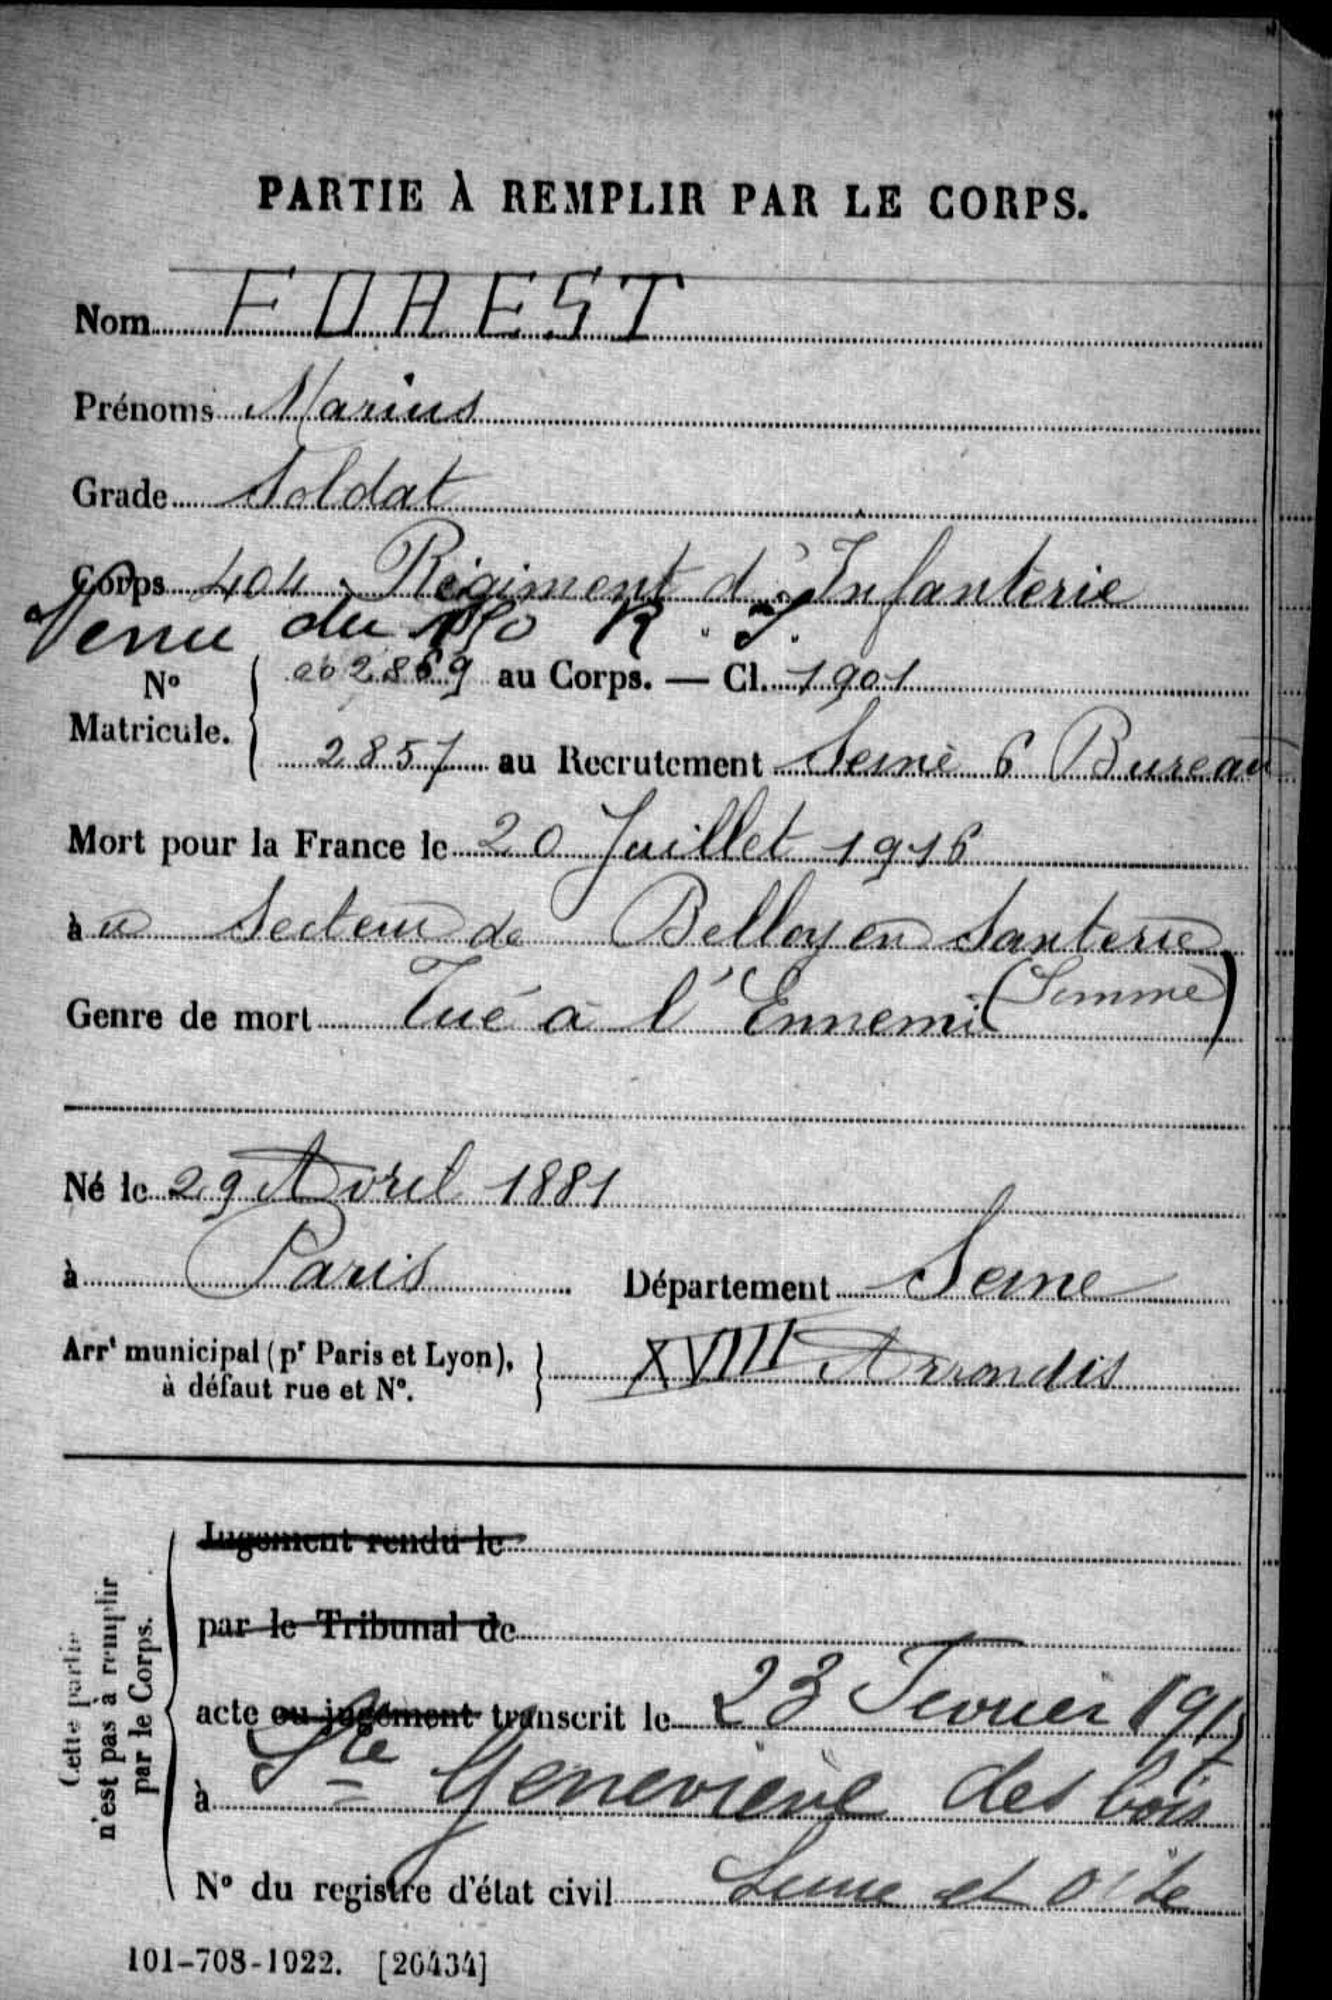 PARTIE À REMPLIR PAR LE CORPS.
Nom FOREST
Prénoms Marius
Grade Soldat
Corps 404 Régiment d'Infanterie
Venu du R. I.
N° Matricule. 002869 au Corps. — Cl. 1901
2857 au Recrutement Seine 6 Bureau
Mort pour la France le 20 Juillet 1916
à u Secteur de Belloy en Santerre
(Somme)
Genre de mort Tué à l'Ennemi
Né le 29 Avril 1881
à Paris Département Seine
Arrt municipal (pr Paris et Lyon), à défaut rue et N°. XVIII Arrondis
Cette partie n'est pas à remplir par le Corps.
Jugement rendu le
par le Tribunal de
acte ou jugement transcrit le 23 Fevrier 1917
à Ste Geneviève des bois
N° du registre d'état civil Seine et Oise
101-708-1922. [26434]